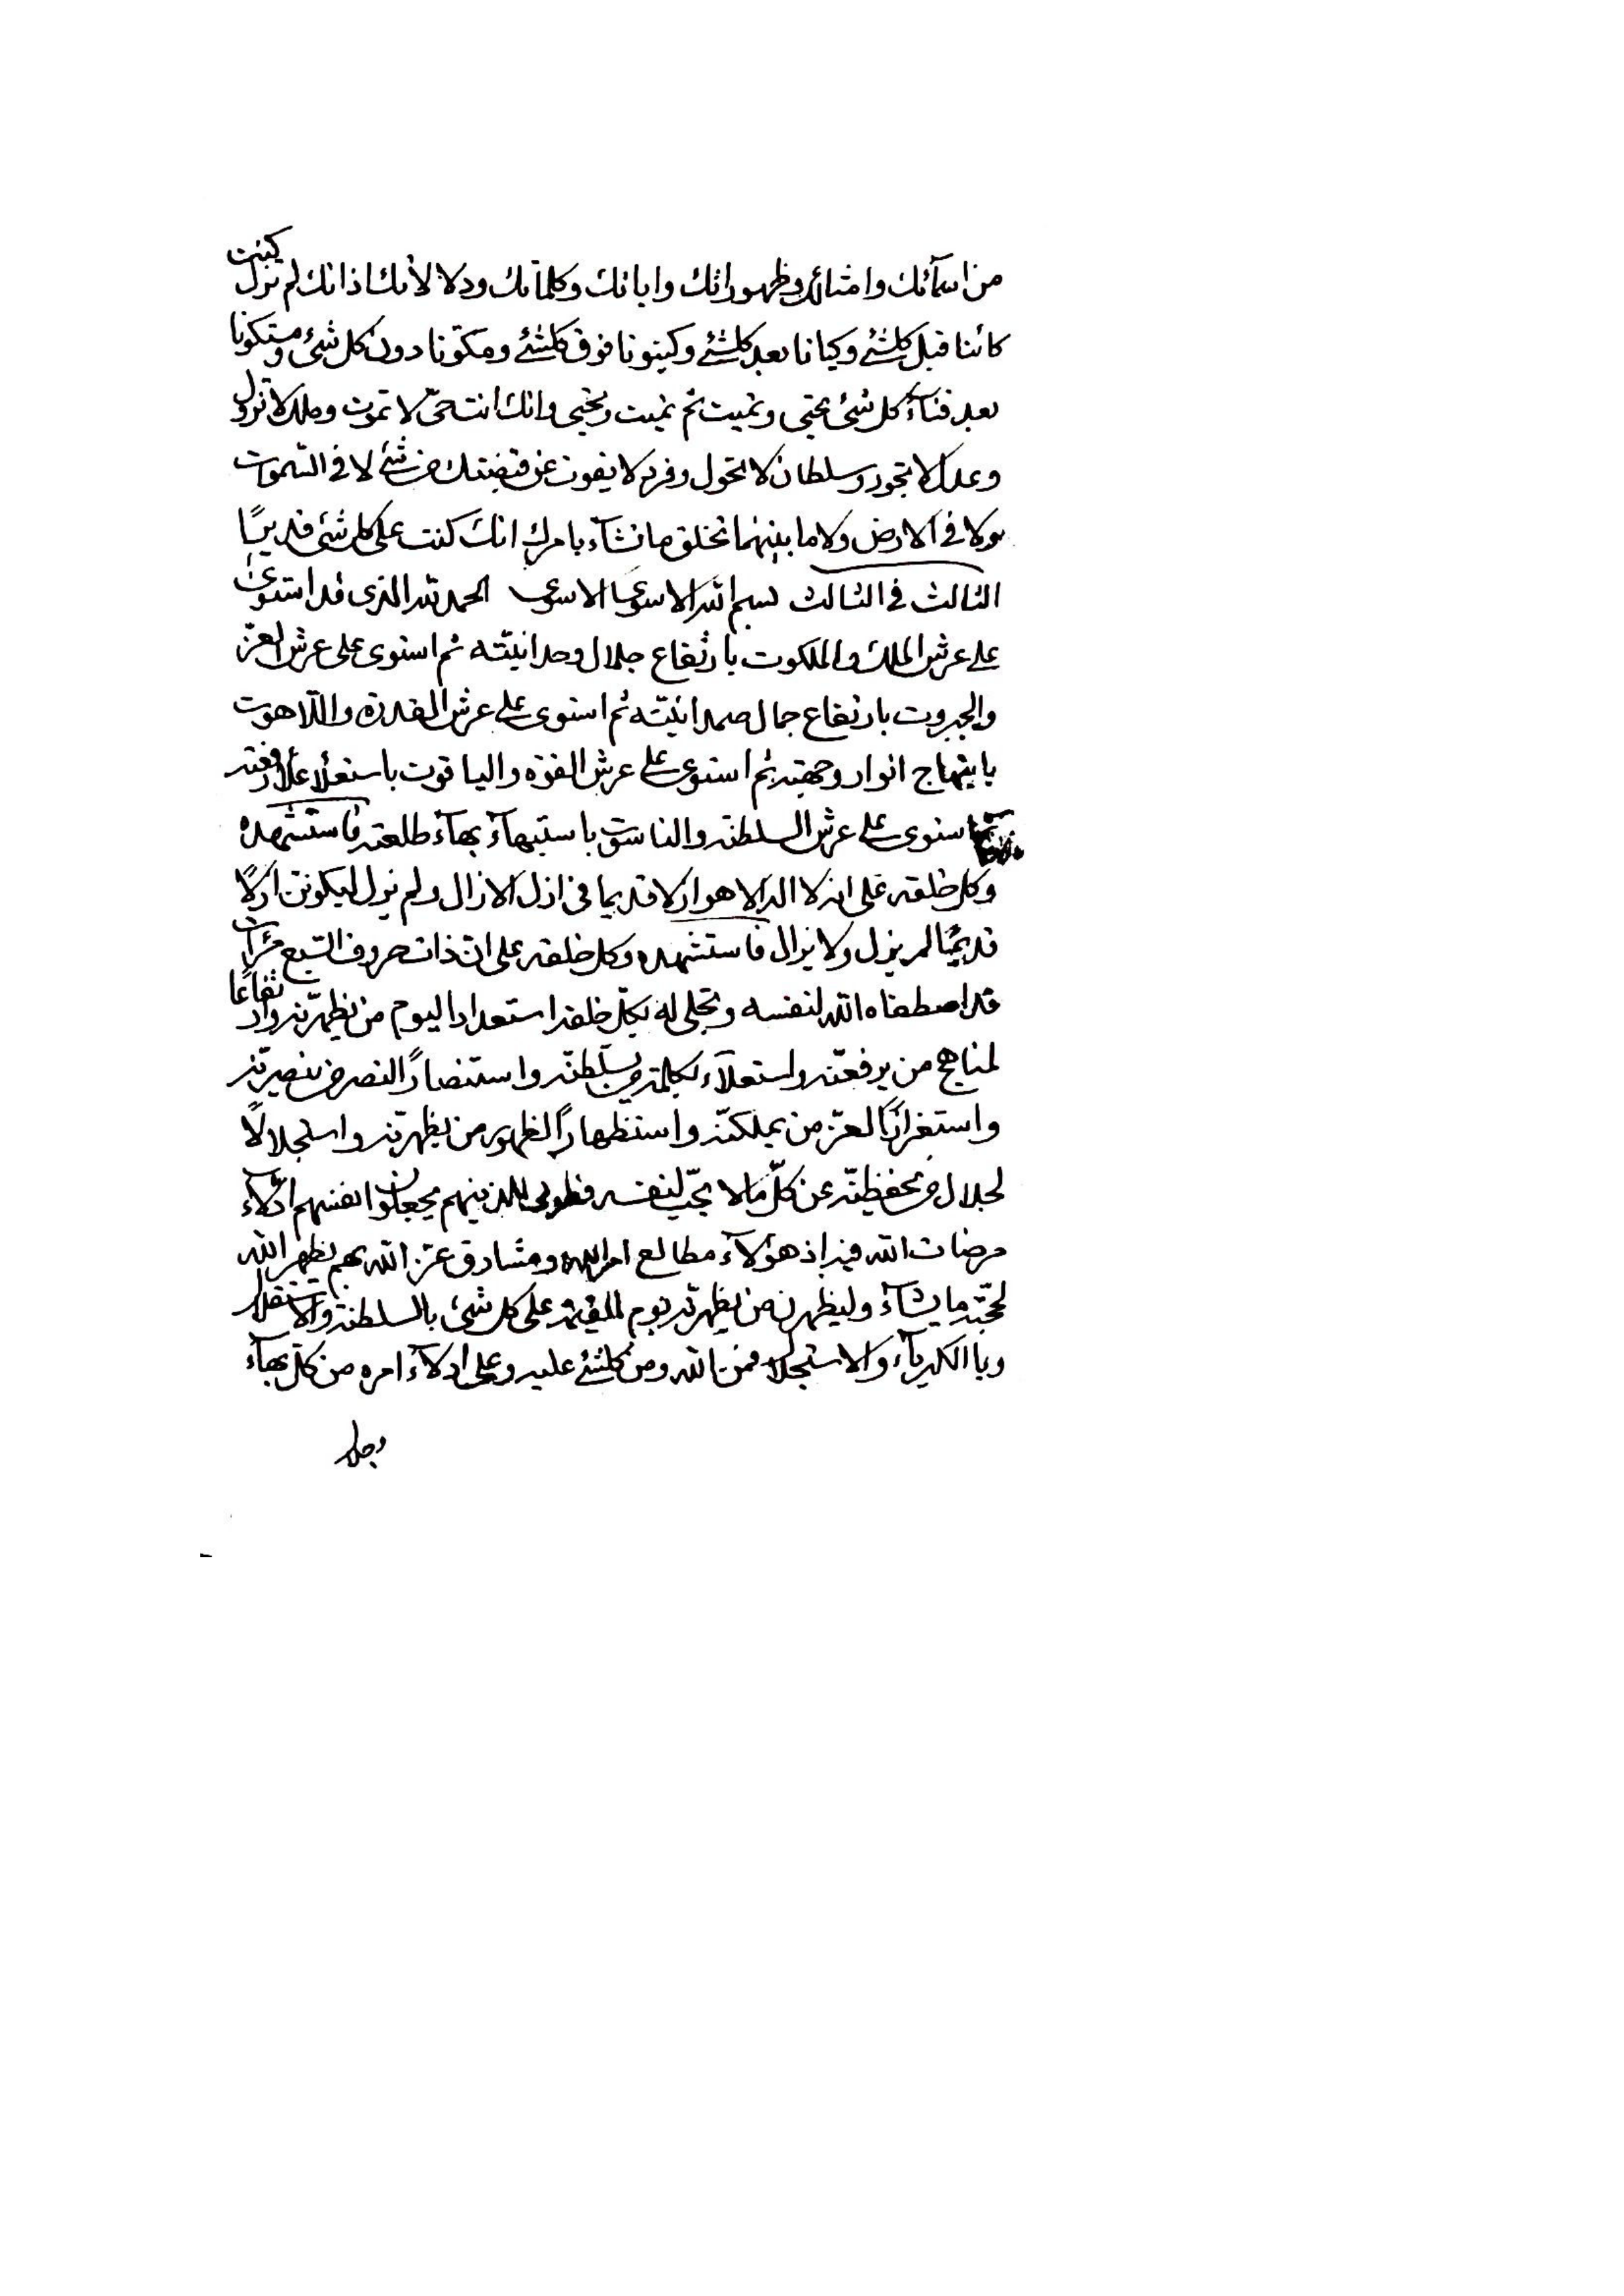 من اسمآئك وامثالك وظهوراتك واياتك وكلماتك ودلالاتك اذ انك لم تزل كنت
كائنا قبل كلشئ وكيانا بعد كلشئ وكينونا فوق كلشئ ومكونا دون كل شئ ومتكونا
بعد فنآء كل شئ تحيى وتميت ثم تميت وتحيى وانك انت حى لا تموت وملك لا تزول
وعدل لا تجور وسلطان لا تحول وفرد لا يفوت عن قبضتك من شئ لا فى السموات
ولا فى الارض ولا ما بينهما تخلق ما تشآء بامرك انك كنت على كل شئ قديرًا
الثالث فى الثالث بسم الله الاسوى الاسوى الحمد لله الذى قد استوى
على عرش الملك والملكوت بارتفاع جلال وحدانيّته ثم استوى على عرش العزّ
والجبروت بارتفاع جمال صمدانيّته ثم استوى على عرش القدرة واللاهوت
بابتهاج انوار وجهته ثم استوى على عرش القوة والياقوت باستعلآء علآء رفعته
ثم استوى على عرش السلطنة والناسوت باستبهآء بهآء طلعته فاستشهده
وكل خلقه على انه لا اله الا هو ازلا قديما فى ازل الازال ولم يزل ليكونن ازلًا
قديمًا لم يزل ولا يزال فاستشهده وكل خلقه على ان ذات حروف السبع مرآت
قد اصطفاه الله لنفسه وتجلى له بكل خلقه استعدادا ليوم من يظهرنه وارتفاعًا
لمناهج من يرفعنّه واستعلآء لكلمة من يسلطنّه واستنصارًا لنصر من ينصرنّه
واستعزازًا لعزّ من يملكنّه واستظهارًا لظهور من يظهرنّه واستجلالًا
لجلال من يحفظنّه عن كلّ ما لا يحبّ لنفسه فطوبى للذينهم يجعلون انفسهم ادلآء
مرضات الله فيه اذ هؤلآء مطالع امر الله ومشارق عزّ الله بهم يظهر الله
لحجّته ما يشآء وليظهرن من يظهرنه يوم القيمة على كل شئ بالسلطنة والاستقلال
وبا الكبريآء والاستجلال فمن الله ومن كلشئ عليه وعلى ادلآء امره من كل بهآء
وجلال